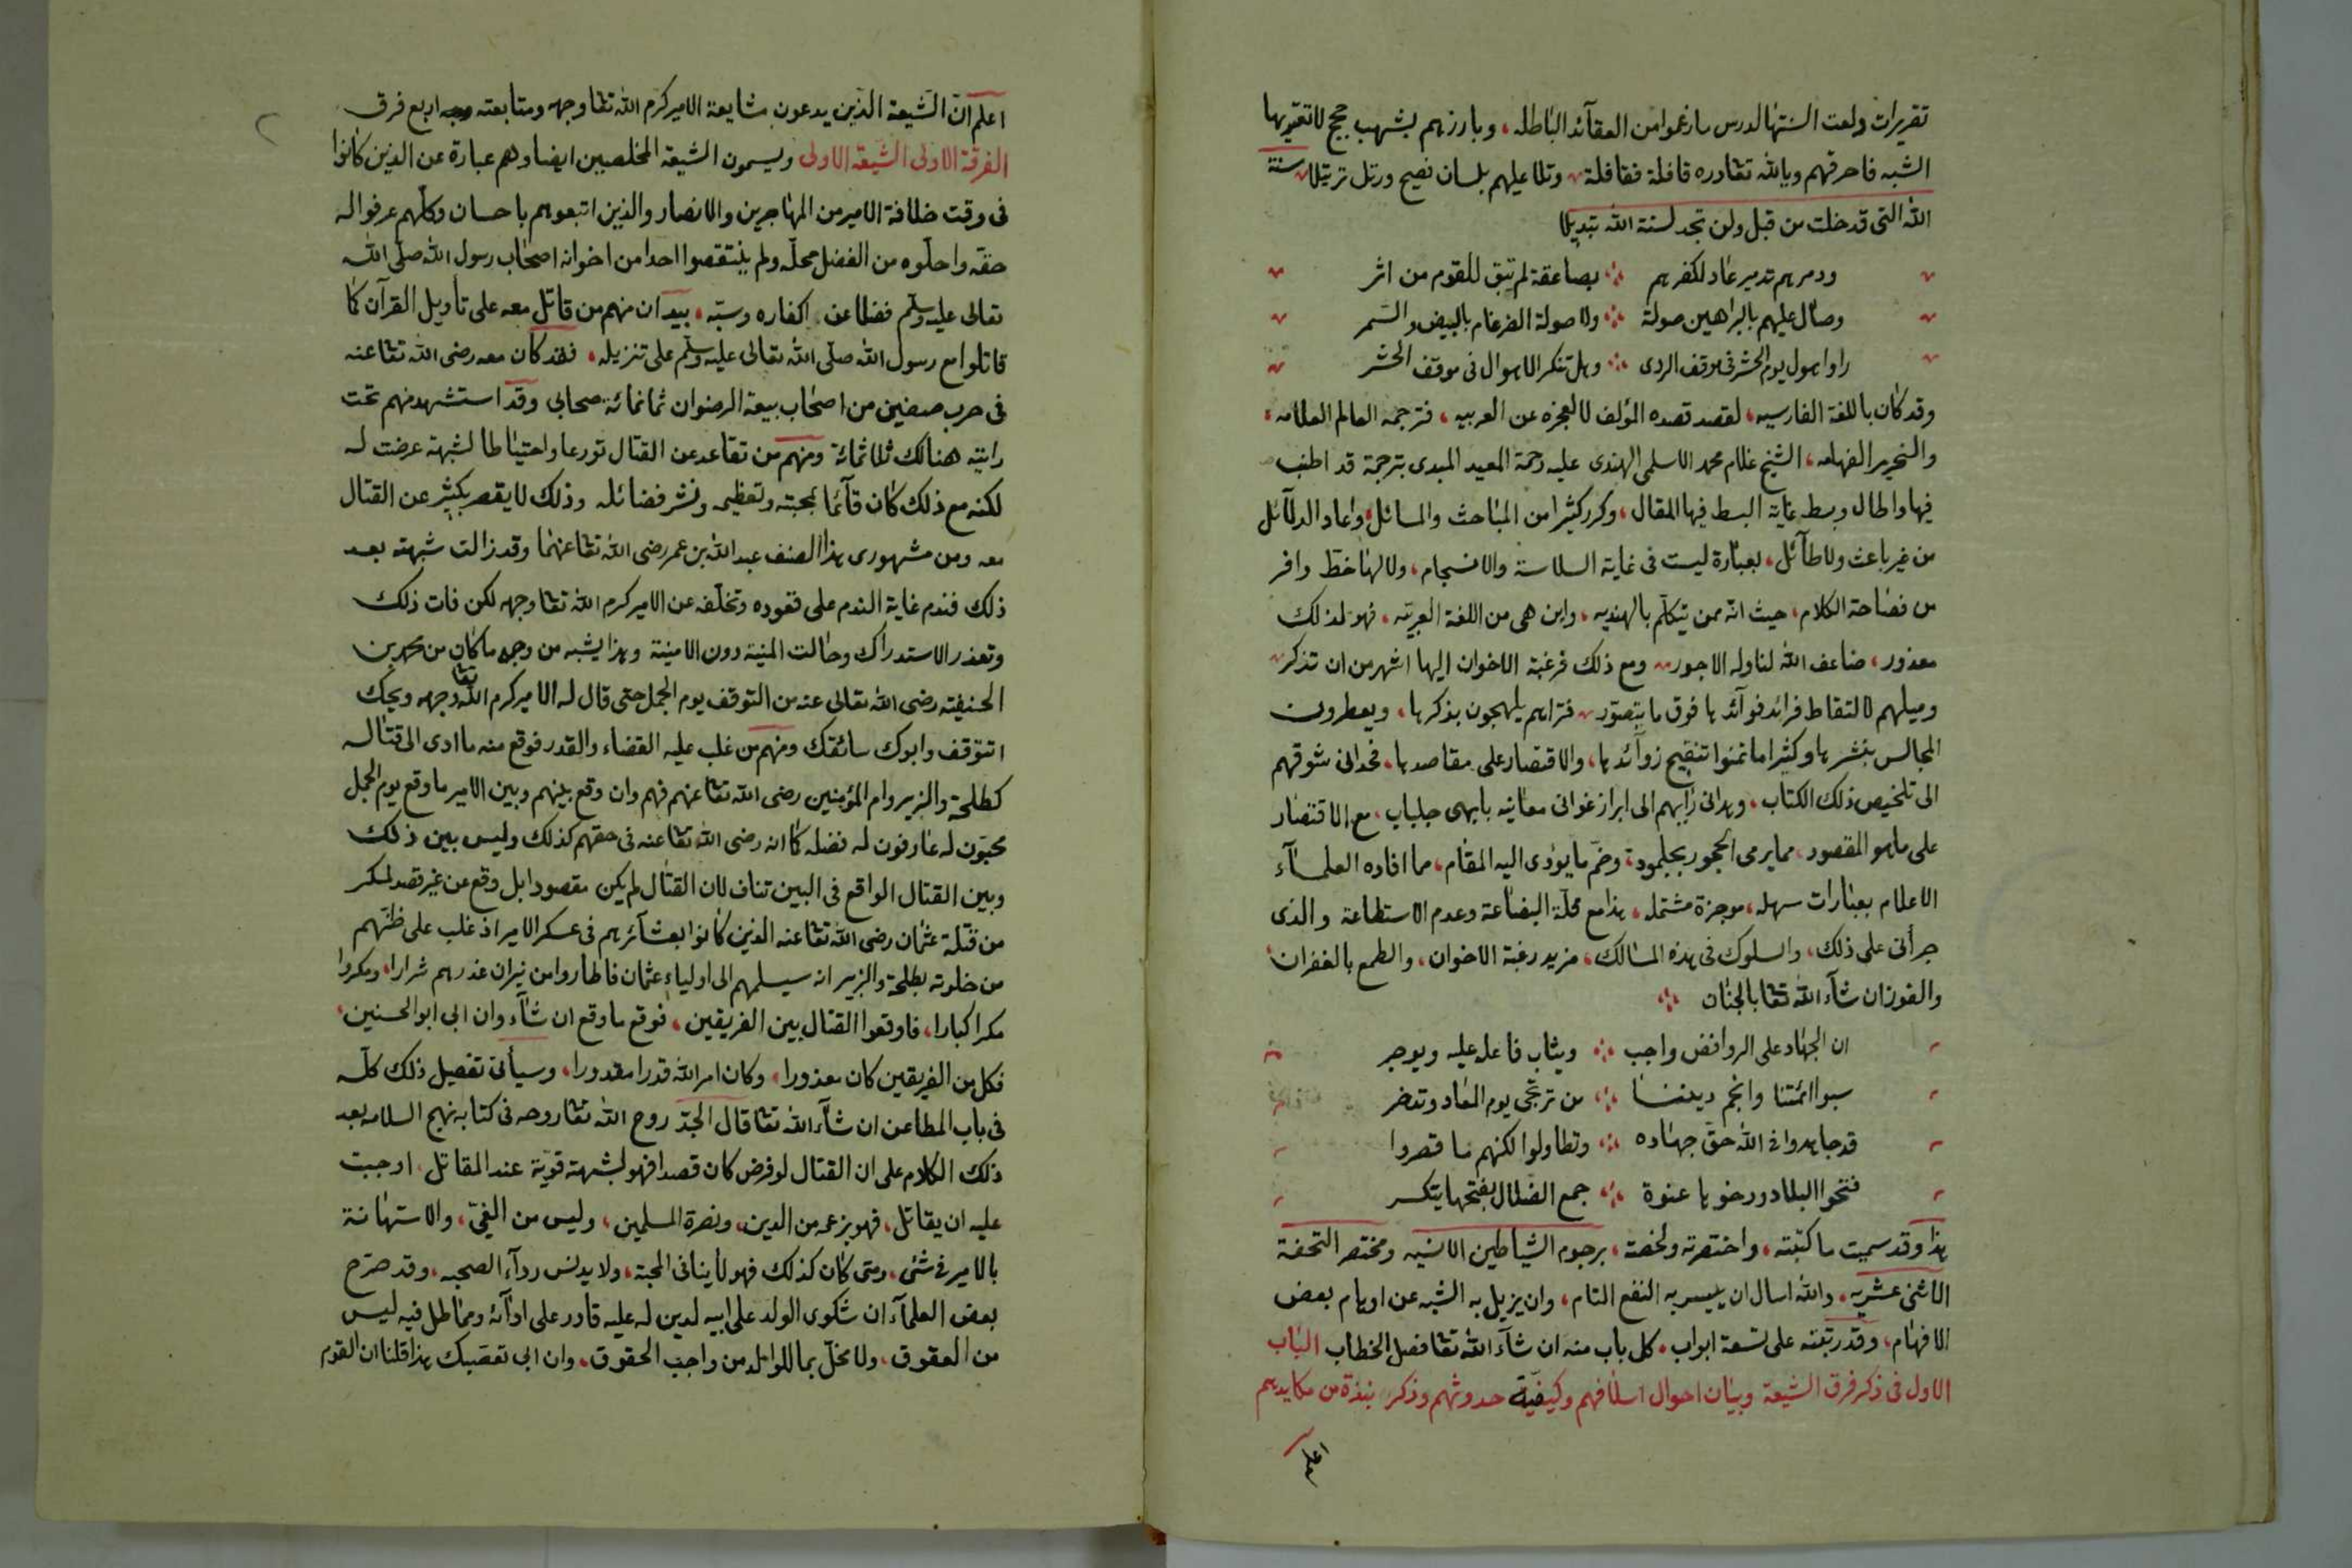 تقريرات ولعت السنتها لدرس ما زعموا من العقآئد الباطله، وبارزهم بشهب حجج لا تعتريها
الشبه فاحرقهم ويالله تعا دره قافلة فقافلة وتلا عليهم بلسان فصيح ورتل ترتيلا سنة
الله التى قد خلت من قبل ولن تجد لسنة الله تبديلا
ودمرهم تدمير عاد لكفرهم ∴ بصاعقة لم تبق للقوم من اثر
وصال عليهم بالبراهين صولة ∴ ولا صولة الضرغام بالبيض والسمر
راوا هول يوم الحشر فى موقف الردى ∴ وهل تنكر الاهوال فى موقف الحشر
وقد كان باللغة الفارسيه، لقصد قصده المؤلف لا لعجزه عن العربيه، فترجمه العالم العلامه،
والنحرير الفهامه، الشيخ غلام محمد الاسلمى الهندى عليه رحمة المعيد المبدى بترجمة قد اطنب
فيها واطال وبسط غاية البسط فيها المقال، وكرر كثيرا من المباحث والمسائل، واعاد الدلآئل
من غير باعث ولا طآئل، بعبارة ليست فى غاية السلاسة والانسجام، ولا لها حظ وافر
من فصاحة الكلام، حيث انه ممن يتكلم بالهنديه، واين هى من اللغة العربيه، فهو لذلك
معذور، ضاعف الله لنا وله الاجور ومع ذلك فرغبة الاخوان اليها اشهر من ان تذكر
وميلهم لالتقاط فرائد فوآئدها فوق ما يتصور فتراهم يلهجون بذكرها، ويعطرون
المجالس بنشرها وكثيرا ما تمنوا تنقيح زوآئدها، والاقتصار على مقاصدها، فحدانى شوقهم
الى تلخيص ذلك الكتاب، وهدانى رأيهم الى ابراز غوانى معانيه بابهى جلباب، مع الاقتصار
على ما هو المقصود، مما يرمى الحجور بجلمود، وضم ما يؤدى اليه المقام، مما افاده العلمآء
الاعلام بعبارات سهله، موجزة مشتمله، هذا مع قلة البضاعة وعدم الاستطاعة والذى
جرأنى على ذلك، والسلوك فى هذه المسالك، مزيد رغبة الاخوان، والطمع بالغفران،
والفوز ان شآء الله تعا بالجنان ∴
ان الجهاد على الروافض واجب ∴ ويثاب فاعله عليه ويوجر
سبوا ائمتنا وانجم ديننا ∴ من ترتجى يوم المعاد وتدخر
قد جاهدوا فى الله حق جهاده ∴ وتطاولوا لكنهم ما قصروا
فتحوا البلاد ودرخوها عنوة ∴ جمع الضلال بفتحها يتكسر
هذا وقد سميت ما كتبته، واختصرته ولخصته، برجوم الشياطين الانسيه ومختصر التحفة
الاثنى عشريه، والله اسال ان ييسر به النفع التام، وان يزيل به الشبه عن اوهام بعض
الافهام، وقد رتبته على تسعة ابواب، كل باب منه ان شآء الله تعا فصل الخطاب الباب
الاول فى ذكر فرق الشيعة وبيان احوال اسلافهم وكيفية حدوثهم وذكر نبذة من مكايدهم
اعلم
اعلم ان الشيعة الذين يدعون مشايعة الامير كرم الله تعا وجهه ومتابعته اربع فرق
الفرقة الاولى الشيعة الاولى ويسمون الشيعة المخلصين ايضا وهم عبارة عن الذين كانوا
فى وقت خلافة الامير من المهاجرين والانصار والذين اتبعوهم باحسان وكلهم عرفوا له
حقه واحلوه من الفضل محله ولم ينتقصوا احدا من اخوانه اصحاب رسول الله صلى الله
تعالى عليه وسلم فضلا عن اكفاره وسبه، بيد ان منهم من قاتل معه على تأويل القرآن كما
قاتلوا مع رسول الله صلى الله تعالى عليه وسلم على تنزيله، فقد كان معه رضى الله تعا عنه
فى حرب صفين من اصحاب بيعة الرضوان ثمانمائة صحابى وقد استشهد منهم تحت
رايته هنالك ثلاثمائة ومنهم من تقاعد عن القتال تورعا واحتياطا لشبهة عرضت له
لكنه مع ذلك كان قآئما بمحبته وتعظيمه ونشر فضائله وذلك لا يقصر بكثير عن القتال
معه ومن مشهورى هذا الصنف عبد الله بن عمر رضى الله تعا عنهما وقد زالت شبهته بعد
ذلك فندم غاية الندم على قعوده وتخلفه عن الامير كرم الله تعا وجهه لكن فات ذلك
وتعذر الاستدراك وحالت المنية دون الامنية وهذا يشبه من وجه ما كان من محمد بن
الحنيفته رضى الله تعالى عنه من التوقف يوم الجمل حتى قال له الامير كرم الله تعا وجهه ويحك
اتتوقف وابوك سائقك ومنهم من غلب عليه القضاء والقدر فوقع منه ما ادى الى قتاله
كطلحة والزبير وام المؤمنين رضى الله تعا عنهم فهم وان وقع بينهم وبين الامير ما وقع يوم الجمل
محبون له عارفون له فضله كما انه رضى الله تعا عنه فى حقهم كذلك وليس بين ذلك
وبين القتال الواقع فى البين تناف لان القتال لم يكن مقصودا بل وقع عن غير قصد لمكر
من قتلة عثمان رضى الله تعا عنه الذين كانوا بعشآئرهم فى عسكر الامير اذ غلب على ظنهم
من خلوته بطلحة والزبير انه سيسلمهم الى اولياء عثمان فاطاروا من نيران غدرهم شرارا، ومكروا
مكرا كبارا، فاوقعوا القتال بين الفريقين، فوقع ما وقع ان شآء وان ابى ابو الحسنين،
فكل من الفريقين كان معذورا، وكان امر الله قدرا مقدورا، وسيأتى تفصيل ذلك كله
فى باب المطاعن ان شآء الله تعا قال الجد روح الله تعا روحه فى كتابه نهج السلامه بعد
ذلك الكلام على ان القتال لو فرض كان قصدا فهو لشبهة قوية عند المقاتل، اوجبت
عليه ان يقاتل، فهو بزعمه من الدين، ونصرة المسلمين، وليس من الغى، والاستهانة
بالامير فى شئى، ومتى كان كذلك فهو لا ينافى المحبة، ولا يدنس ردآء الصحبه، وقد صرح
بعض العلمآء ان شكوى الولد على ابيه لدين له عليه قادر على ادآئه ومماطل فيه ليس
من العقوق، ولا مخل بما للوالد من واجب الحقوق، وان ابى تعصبك هذا قلنا ان القوم